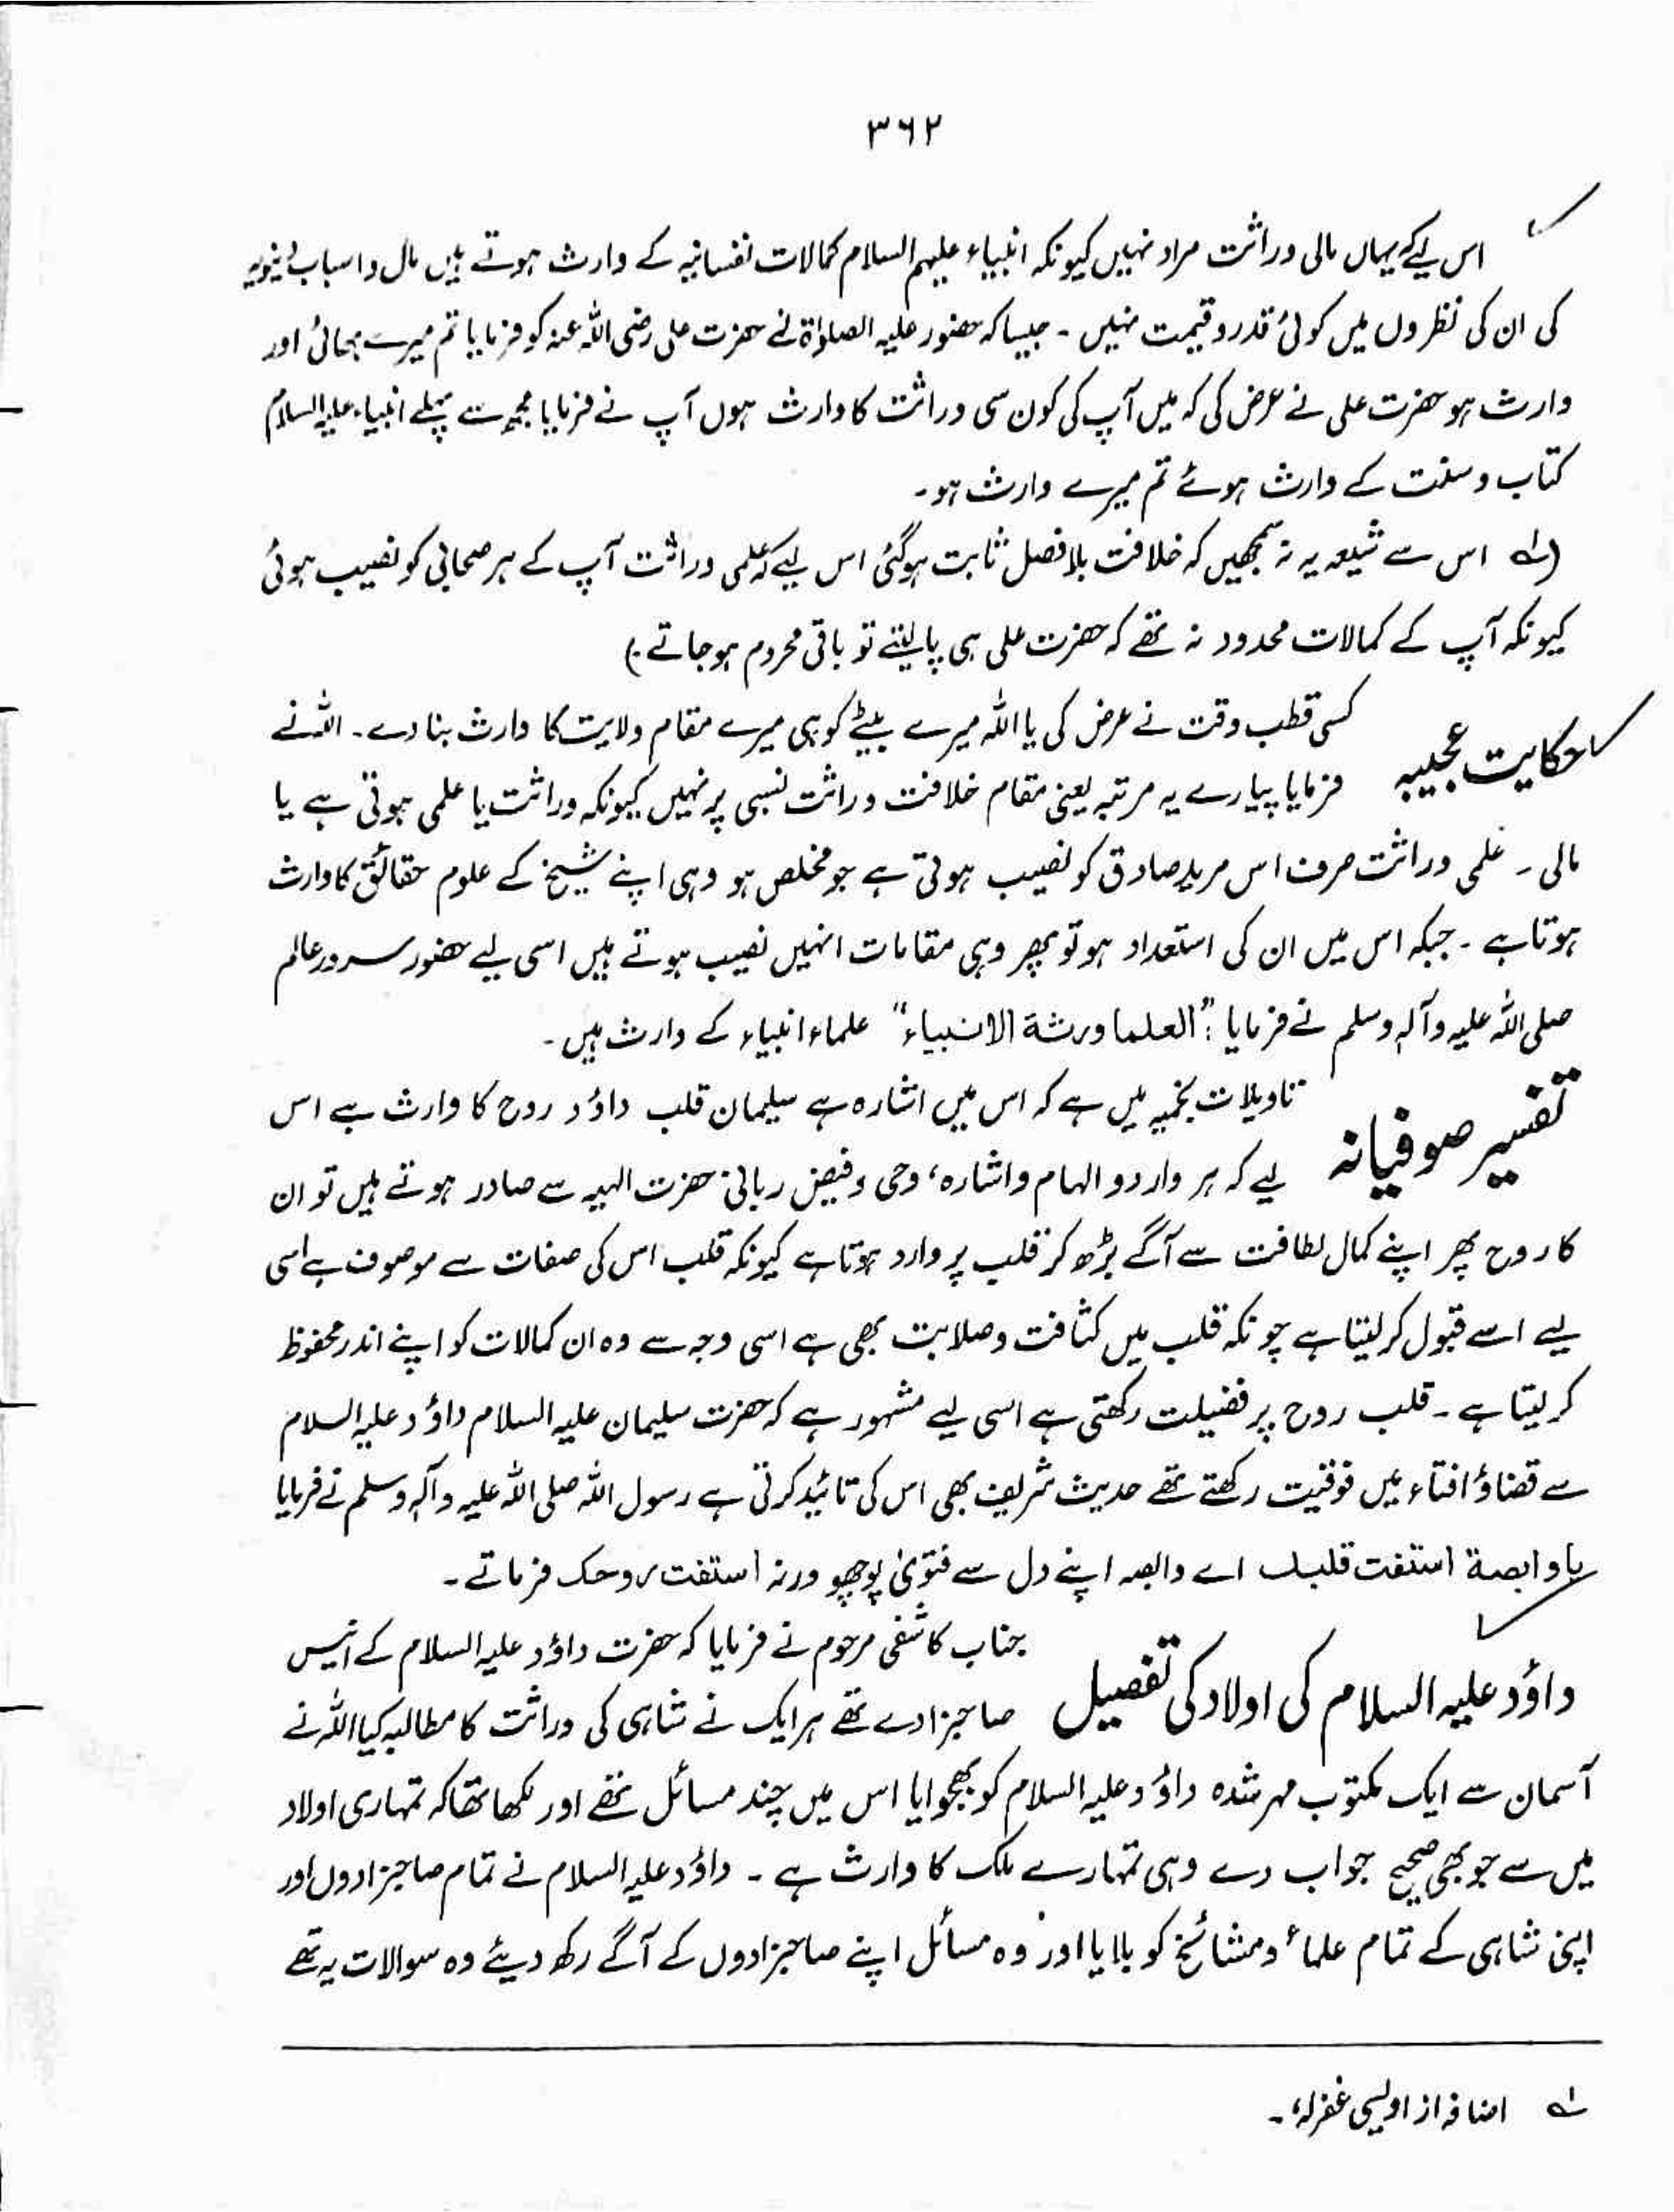 ۳۶۲
اس لیے کہ یہاں مالی وراثت مراد نہیں کیونکہ انبیاء علیہم السلام کمالات نفسانیہ کے وارث ہوتے ہیں مال و اسباب دنیویہ
کی ان کی نظروں میں کوئی قدر و قیمت نہیں ۔ جیسا کہ حضور علیہ الصلوٰۃ نے حضرت علی رضی اللہ عنہ کو فرمایا تم میرے بھائی اور
وارث ہو حضرت علی نے عرض کی کہ میں آپ کی کون سی وراثت کا وارث ہوں آپ نے فرمایا مجھ سے پہلے انبیاء علیہ السلام
کتاب و سنت کے وارث ہوئے تم میرے وارث ہو ۔
(لہ اس سے شیعہ یہ نہ سمجھیں کہ خلافت بلا فصل ثابت ہوگئی اس لیے کہ علمی وراثت آپ کے ہر صحابی کو نصیب ہوئی
کیونکہ آپ کے کمالات محدود نہ تھے کہ حضرت علی ہی پا لیتے تو باقی محروم ہو جاتے ۔)
حکایت عجیبہ کسی قطب وقت نے عرض کی یا اللہ میرے بیٹے کو ہی میرے مقام ولایت کا وارث بنا دے ۔ اللہ نے
فرمایا پیارے یہ مرتبہ یعنی مقام خلافت وراثت نسبی پر نہیں کیونکہ وراثت یا علمی ہوتی ہے یا
مالی ۔ علمی وراثت صرف اس مرید صادق کو نصیب ہوتی ہے جو مخلص ہو وہی اپنے شیخ کے علوم حقائق کا وارث
ہوتا ہے ۔ جبکہ اس میں ان کی استعداد ہو تو پھر وہی مقامات انہیں نصیب ہوتے ہیں اسی لیے حضور سرور عالم
صلی اللہ علیہ وآلہ وسلم نے فرمایا : "العلما ورثة الانبیاء" علماء انبیاء کے وارث ہیں ۔
تفسیر صوفیانہ تاویلات نجمیہ میں ہے کہ اس میں اشارہ ہے سلیمان قلب داؤد روح کا وارث ہے اس
لیے کہ ہر وارد و الہام و اشارہ، وحی و فیض ربانی حضرت الہیہ سے صادر ہوتے ہیں تو ان
کا روح پھر اپنے کمال لطافت سے آگے بڑھ کر قلب پر وارد ہوتا ہے کیونکہ قلب اس کی صفات سے موصوف ہے اسی
لیے اسے قبول کر لیتا ہے چونکہ قلب میں کثافت و صلابت بھی ہے اسی وجہ سے وہ ان کمالات کو اپنے اندر محفوظ
کر لیتا ہے ۔ قلب روح پر فضیلت رکھتی ہے اسی لیے مشہور ہے کہ حضرت سلیمان علیہ السلام داؤد علیہ السلام
سے قضاؤ افتاء میں فوقیت رکھتے تھے حدیث شریف بھی اس کی تائید کرتی ہے رسول اللہ صلی اللہ علیہ وآلہ وسلم نے فرمایا
یا وابصة استفت قلبك اے وابصہ اپنے دل سے فتویٰ پوچھو ورنہ استفت روحک فرماتے ۔
داؤد علیہ السلام کی اولاد کی تفصیل جناب کاشفی مرحوم نے فرمایا کہ حضرت داؤد علیہ السلام کے انیس
صاحبزادے تھے ہر ایک نے شاہی کی وراثت کا مطالبہ کیا اللہ نے
آسمان سے ایک مکتوب مہر شدہ داؤد علیہ السلام کو بھجوایا اس میں چند مسائل تھے اور لکھا تھا کہ تمہاری اولاد
میں سے جو بھی صحیح جواب دے وہی تمہارے ملک کا وارث ہے ۔ داؤد علیہ السلام نے تمام صاحبزادوں اور
اپنی شاہی کے تمام علماء و مشائخ کو بلایا اور وہ مسائل اپنے صاحبزادوں کے آگے رکھ دیئے وہ سوالات یہ تھے
لہ اضافہ از اویسی غفرلہٗ ۔